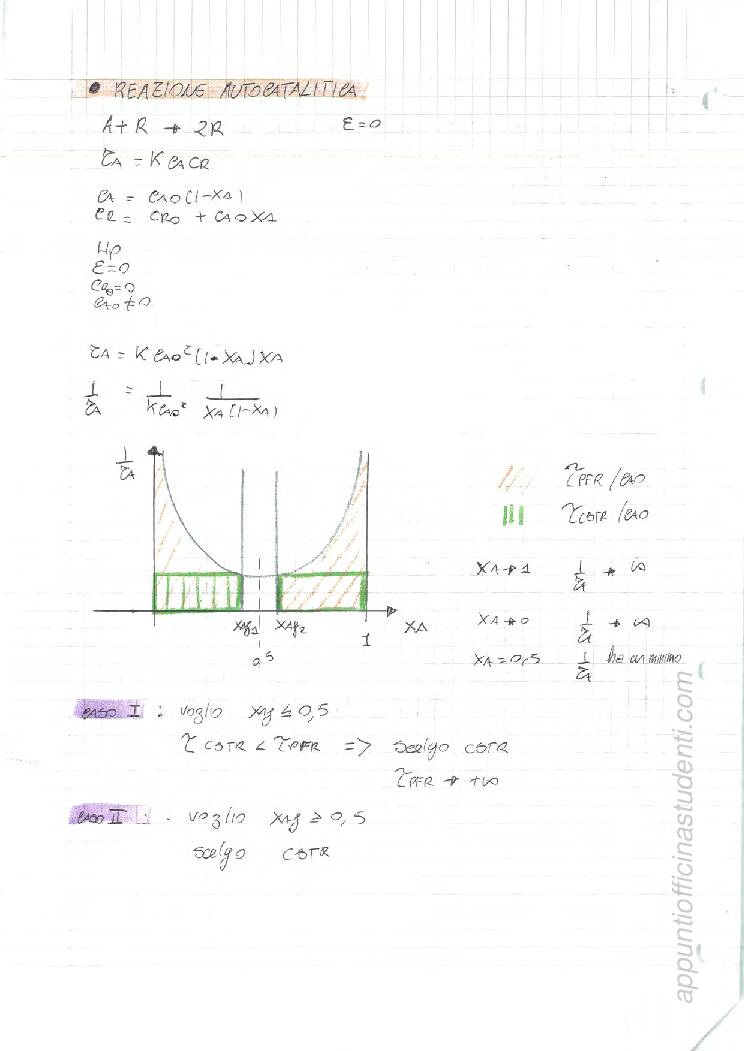 • REAZIONE AUTOCATALITICA
A + R → 2R ε=0
rA = K CA CR
CA = CA0 (1-XA)
CR = CR0 + CA0 XA
Hp
ε=0
CR0=0
CA0≠0
rA = K CA0² (1-XA) XA
1/rA = 1/(K CA0²) 1/(XA(1-XA))
1/rA
τPFR / CA0
τCSTR / CA0
XA → 1 1/rA → ∞
XA → 0 1/rA → ∞
XA = 0,5 1/rA ha un minimo
XAf1 XAf2 XA
0,5 1
CASO I : voglio XAf ≤ 0,5
τ CSTR < τ PFR => scelgo CSTR
τPFR → +∞
CASO II : voglio XAf ≥ 0,5
scelgo CSTR
appuntiofficinastudenti.com